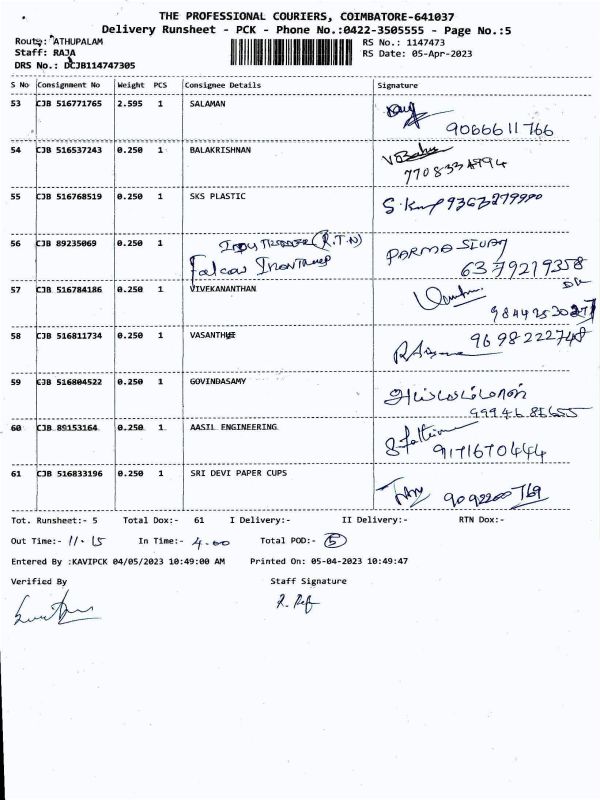 THE PROFESSIONAL COURIERS, COIMBATORE-641037
Delivery Runsheet - PCK - Phone No.:0422-3505555 - Page No.:5
Route: ATHUPALAM
RS No.: 1147473
Staff: RAJA
RS Date: 05-Apr-2023
DRS No.: DCJB114747305
S No Consignment No Weight PCS Consignee Details Signature
53 CJB 516771765 2.595 1 SALAMAN
9066611766
54 CJB 516537243 0.250 1 BALAKRISHNAN
7708334994
55 CJB 516768519 0.250 1 SKS PLASTIC
56 CJB 89235069 0.250 1 (R.T.N) PARMASIVAM
Falcon 6379219358
57 CJB 516784186 0.250 1 VIVEKANANTHAN
58 CJB 516811734 0.250 1 VASANTHI 9698222748
59 CJB 516804522 0.250 1 GOVINDASAMY
60 CJB 89153164 0.250 1 AASIL ENGINEERING
9171670444
61 CJB 516833196 0.250 1 SRI DEVI PAPER CUPS
9092200769
Tot. Runsheet:- 5 Total Dox:- 61 I Delivery:- II Delivery:- RTN Dox:-
Out Time:- 11.15 In Time:- 4.00 Total POD:- 5
Entered By :KAVIPCK 04/05/2023 10:49:00 AM Printed On: 05-04-2023 10:49:47
Verified By Staff Signature